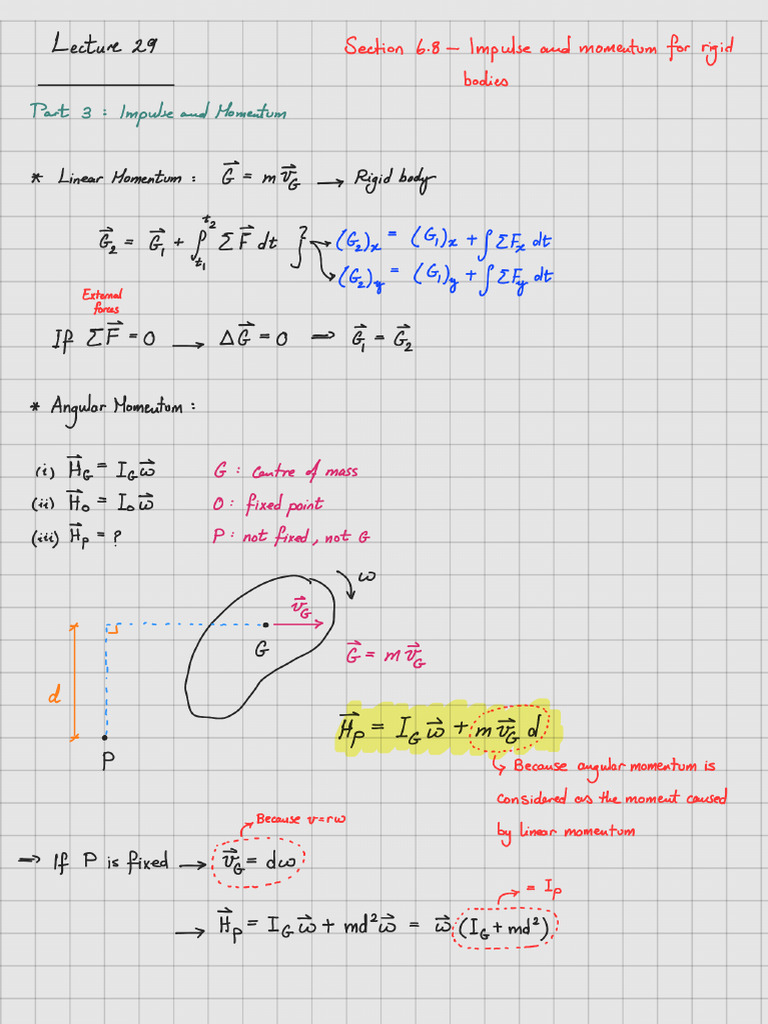 Lecture 29
Section 6.8 – Impulse and momentum for rigid
bodies
Part 3 : Impulse and Momentum
* Linear Momentum : G⃗ = m v⃗_G → Rigid body
G⃗₂ = G⃗₁ + ∫_{t₁}^{t₂} Σ F⃗ dt } → (G₂)ₓ = (G₁)ₓ + ∫ΣFₓ dt
(G₂)_y = (G₁)_y + ∫ΣF_y dt
External
forces
If ΣF⃗ = 0 → ΔG⃗ = 0 ⇒ G⃗₁ = G⃗₂
* Angular Momentum :
(i) H⃗_G = I_G ω⃗ G : centre of mass
(ii) H⃗_O = I_O ω⃗ O : fixed point
(iii) H⃗_P = ? P : not fixed, not G
ω
v⃗_G
G
G⃗ = m v⃗_G
d
P
H⃗_P = I_G ω⃗ + m v⃗_G d
↳ Because angular momentum is
considered as the moment caused
by linear momentum
Because v=rω
⇒ If P is fixed → v⃗_G = dω
= I_P
→ H⃗_P = I_G ω⃗ + md² ω⃗ = ω⃗ (I_G + md²)